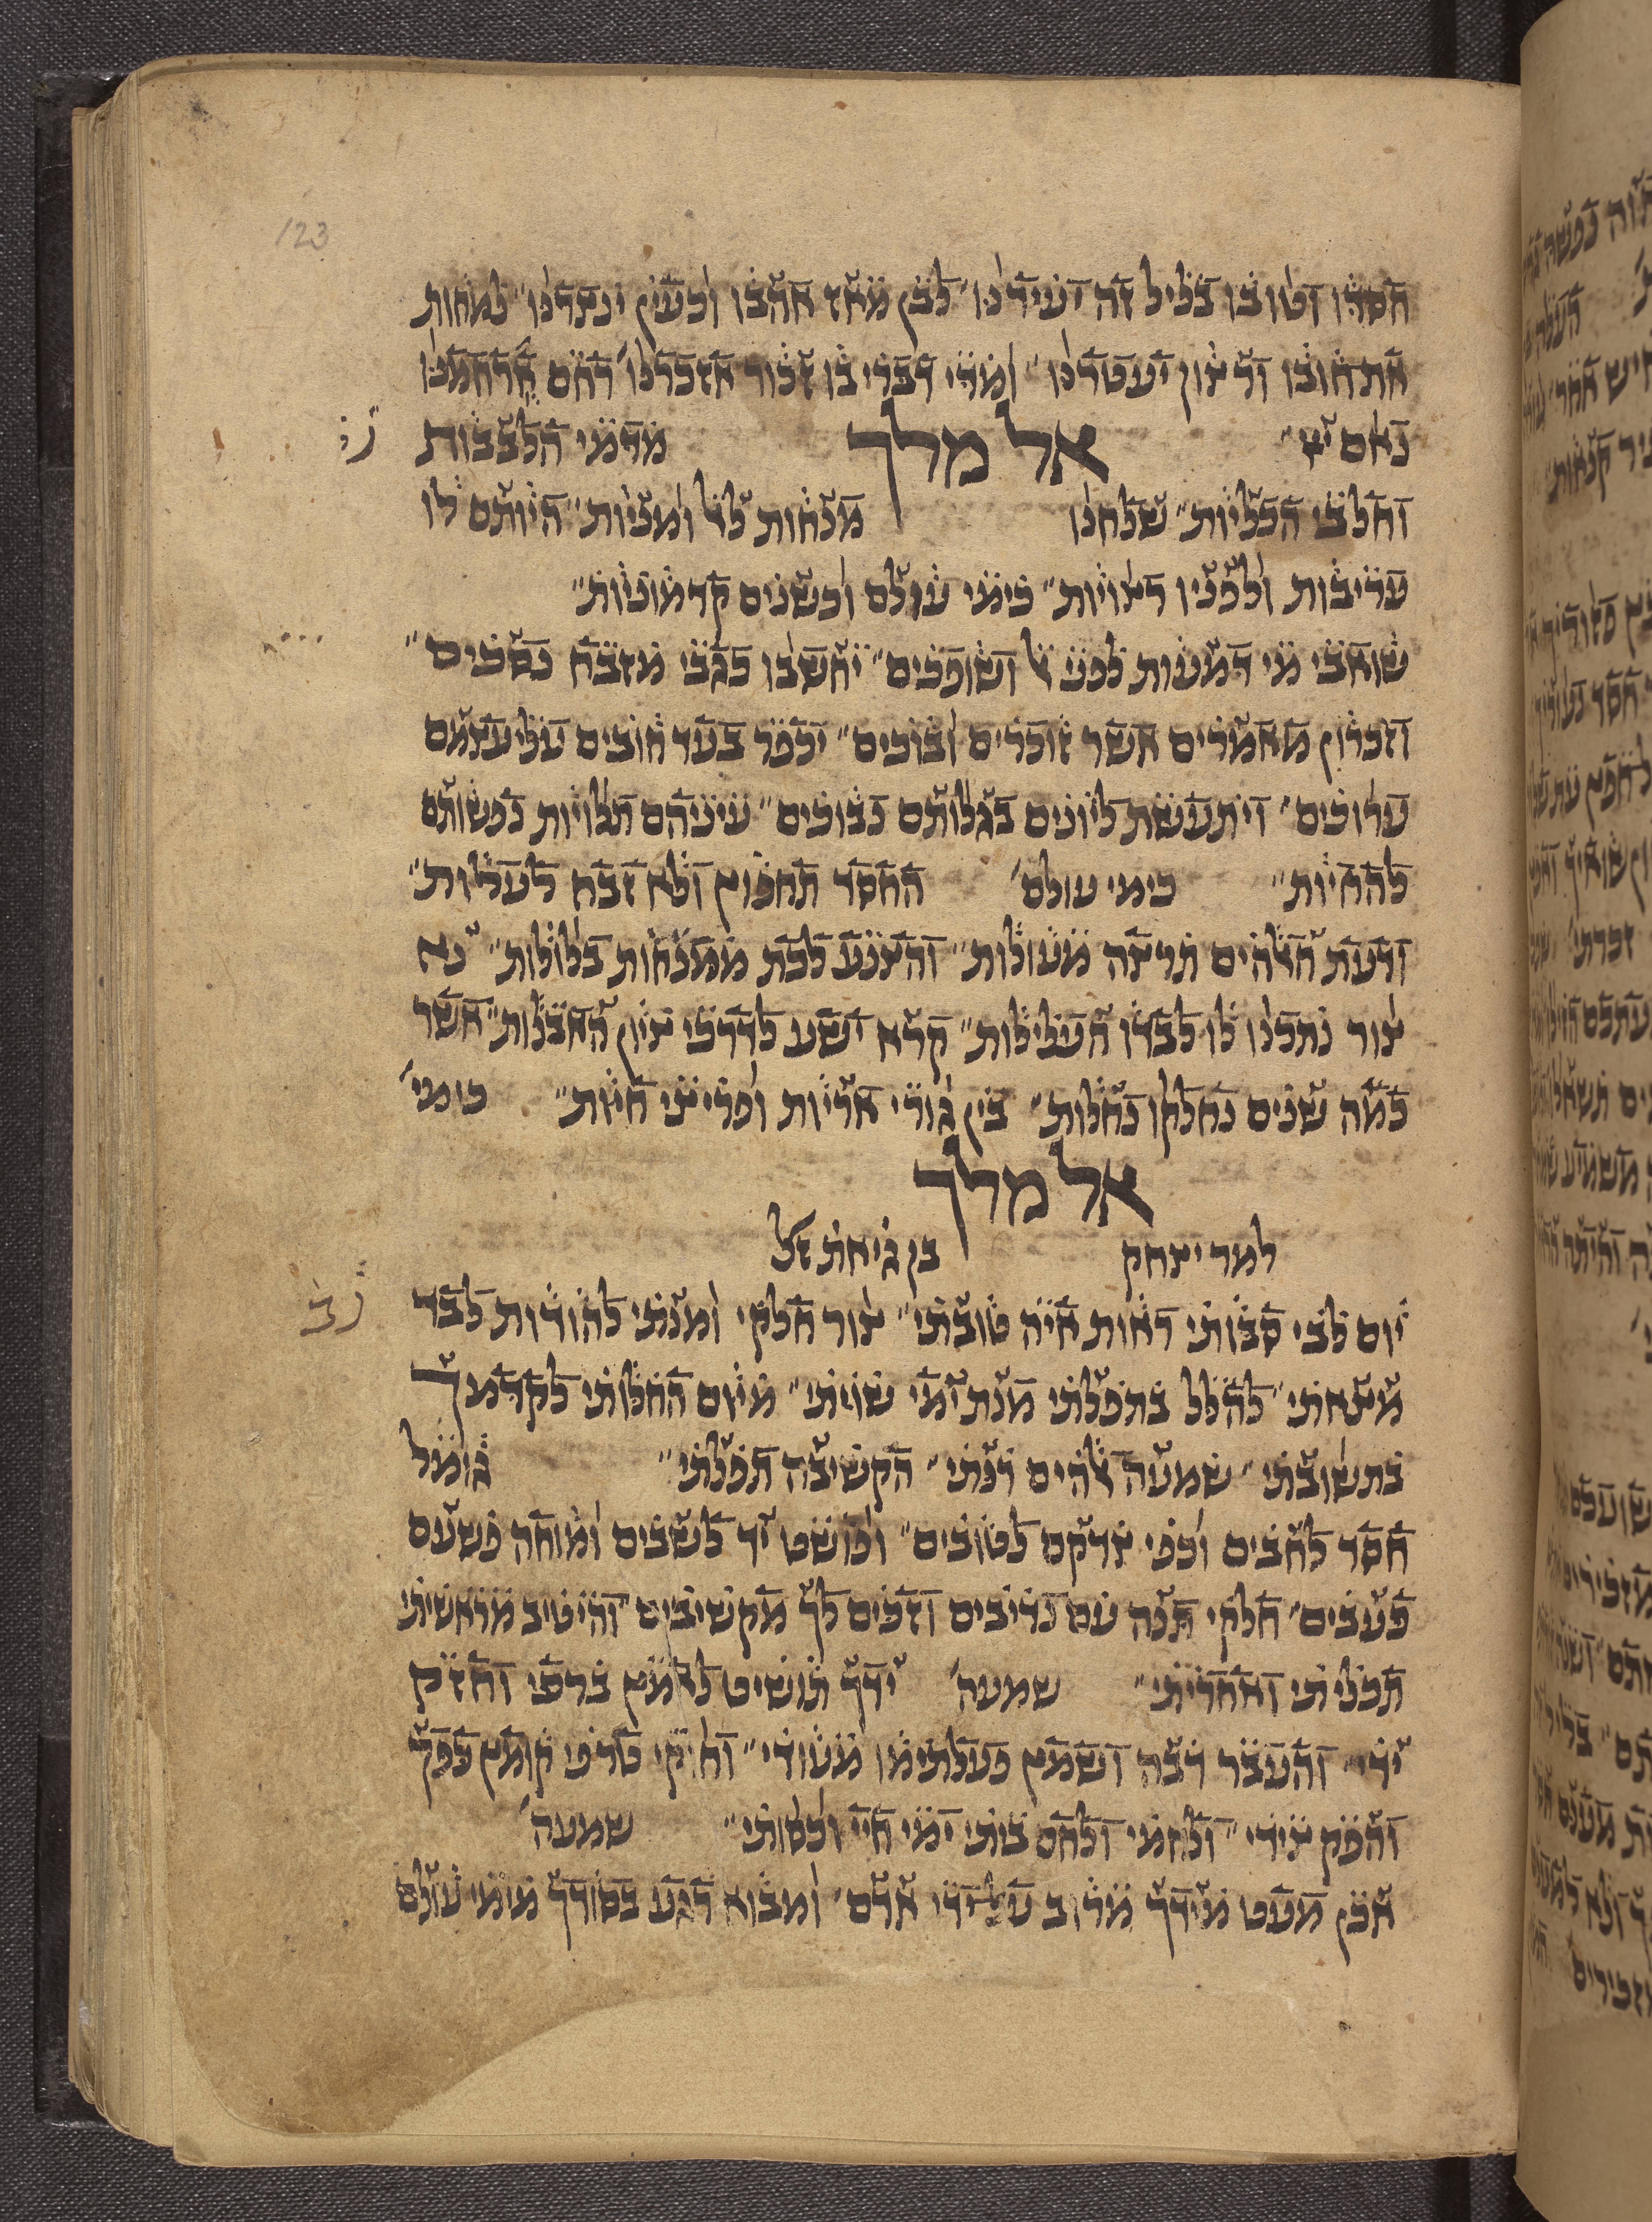 123
חסדו וטובו כליל זה יעידנו״ לכן מאז אהבו וכעין ינצרנו״ למחות
את חובו ורצון יעטרנו״ ומדי דברי בו זכור אזכרנו׳ רחם ארחמנו
נאום יי״ אל מלך מדמי הלבבות
וחלבי הכליות״ שלחנו מנחות לאל ומניות״ היותם לו
עריבות ולפניו רצויות״ כימי עולם וכשנים קדמוניות״
שואבי מי דמעות לפני אל ושופכים״ יחשבו כגבי מזבח נסכים״
וזכרון מאמרים אשר זוכרים ובוכים״ יכפר בעד חובים עלי עצמם
ערוכים״ ויתעשת ליונים בגלותם נבוכים״ עיניהם תלויות נפשותם
להחיות״ כימי עולם׳ החסד תחפוץ ולא זבח לעלות״
ודעת אלהים תרצה מעולות״ והצנע לכת ממנחות בלולות״ נא
צור נתכנו לו לבדו העלילות״ קרא ישע לדרכי ציון האבלות״ אשר
כמה שנים נחלקו נחלות״ בין גורי אריות ופריצי חיות״ כימי׳
אל מלך
למר יצחק בן גיאת זצל
יום לבי סבותי ראות איה טובתי״ צור חלקי ומנתי להודות לבד
מצאתי״ להלל בתפלתי מנת ימי שויתי״ מיום החלותי לקדמך
בתשובתי״ שמעה אלהים רנתי״ הקשיבה תפלתי״ גומל
חסד לחבים וכפי צדקם לטובים״ ופושט יד לשבים ומוחה פשעם
כעבים״ חלקי תנה עם נדיבים וזכים לך מקשיבים״ והיטיב מראשיתי
תכליתי ואחריתי״ שמעה׳ ידך תושיט לאמץ ברכי וחזק
ידי״ והעבר רבה ושמץ פעלתימו מעודי״ טרפי קומץ כפך
והפק צידי״ ולחמי ולחם ביתי ימי חיי וכסותי״ שמעה׳
אבק מעט מידך מרוב על ידי אדם״ ומבוא רגע בסודך מימי עולם